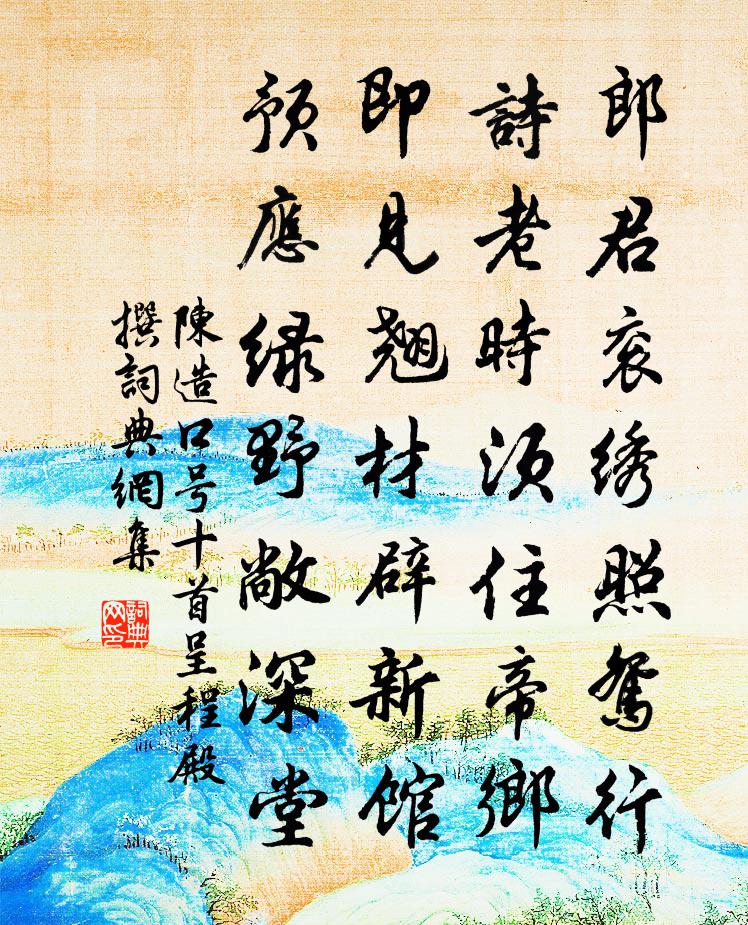 郎君衮绣照鸳行
詩老時須住帝鄉
即見翹材辟新馆
預應緑野敞深堂
陳造口号十首呈程殿
撰詞典網集
詞典网印